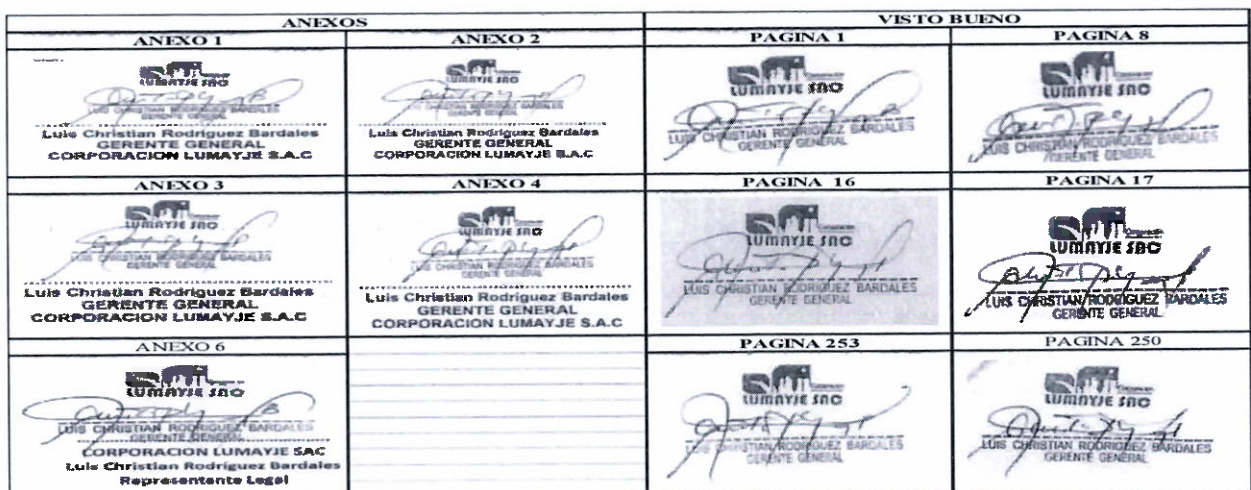 ANEXOS
VISTO BUENO
ANEXO 1
ANEXO 2
PAGINA 1
PAGINA 8
LUMAYJE SAC
LUIS CHRISTIAN RODRIGUEZ BARDALES
GERENTE GENERAL
Luis Christian Rodriguez Bardales
GERENTE GENERAL
CORPORACION LUMAYJE S.A.C
LUMAYJE SAC
LUIS CHRISTIAN RODRIGUEZ BARDALES
GERENTE GENERAL
Luis Christian Rodriguez Bardales
GERENTE GENERAL
CORPORACION LUMAYJE S.A.C
Corporación
LUMAYJE SAC
LUIS CHRISTIAN RODRIGUEZ BARDALES
GERENTE GENERAL
Corporación
LUMAYJE SAC
LUIS CHRISTIAN RODRIGUEZ BARDALES
GERENTE GENERAL
ANEXO 3
ANEXO 4
PAGINA 16
PAGINA 17
LUMAYJE SAC
LUIS CHRISTIAN RODRIGUEZ BARDALES
GERENTE GENERAL
Luis Christian Rodriguez Bardales
GERENTE GENERAL
CORPORACION LUMAYJE S.A.C
LUMAYJE SAC
LUIS CHRISTIAN RODRIGUEZ BARDALES
GERENTE GENERAL
Luis Christian Rodriguez Bardales
GERENTE GENERAL
CORPORACION LUMAYJE S.A.C
Corporación
LUMAYJE SAC
LUIS CHRISTIAN RODRIGUEZ BARDALES
GERENTE GENERAL
Corporación
LUMAYJE SAC
LUIS CHRISTIAN RODRIGUEZ BARDALES
GERENTE GENERAL
ANEXO 6
PAGINA 253
PAGINA 250
LUMAYJE SAC
LUIS CHRISTIAN RODRIGUEZ BARDALES
GERENTE GENERAL
CORPORACION LUMAYJE SAC
Luis Christian Rodriguez Bardales
Representante Legal
Corporación
LUMAYJE SAC
LUIS CHRISTIAN RODRIGUEZ BARDALES
GERENTE GENERAL
Corporación
LUMAYJE SAC
LUIS CHRISTIAN RODRIGUEZ BARDALES
GERENTE GENERAL